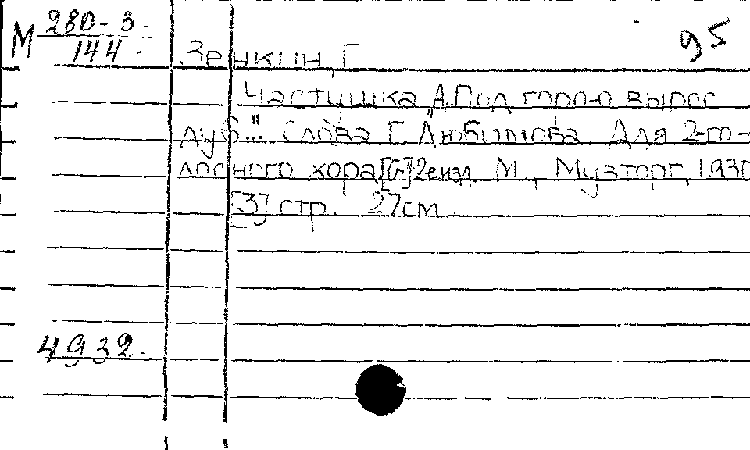 М 280-3
144
95
Зенкин, Г.
Частушка "А под горою вырос
дуб". Слова Г. Любимова. Для 2-го-
лосного хора [G] 2 изд. М., Музторг, 1930
[3] стр. 27 см.
4932.